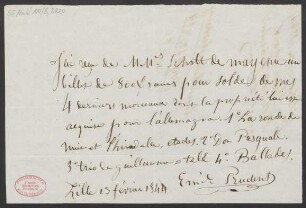 J'ai reçu de M.rs Schott de Mayence un
billet de 800 francs pour solde de mes
4 derniers morceaux dont la propriété lui est
acquise pour l'allemagne. 1° La ronde de
nuit et l'hirondelle, etudes. 2° Don Pasquale
3° trio de guillaume tell 4° Ballade.
Lille 13 février 1844
Emile Prudent